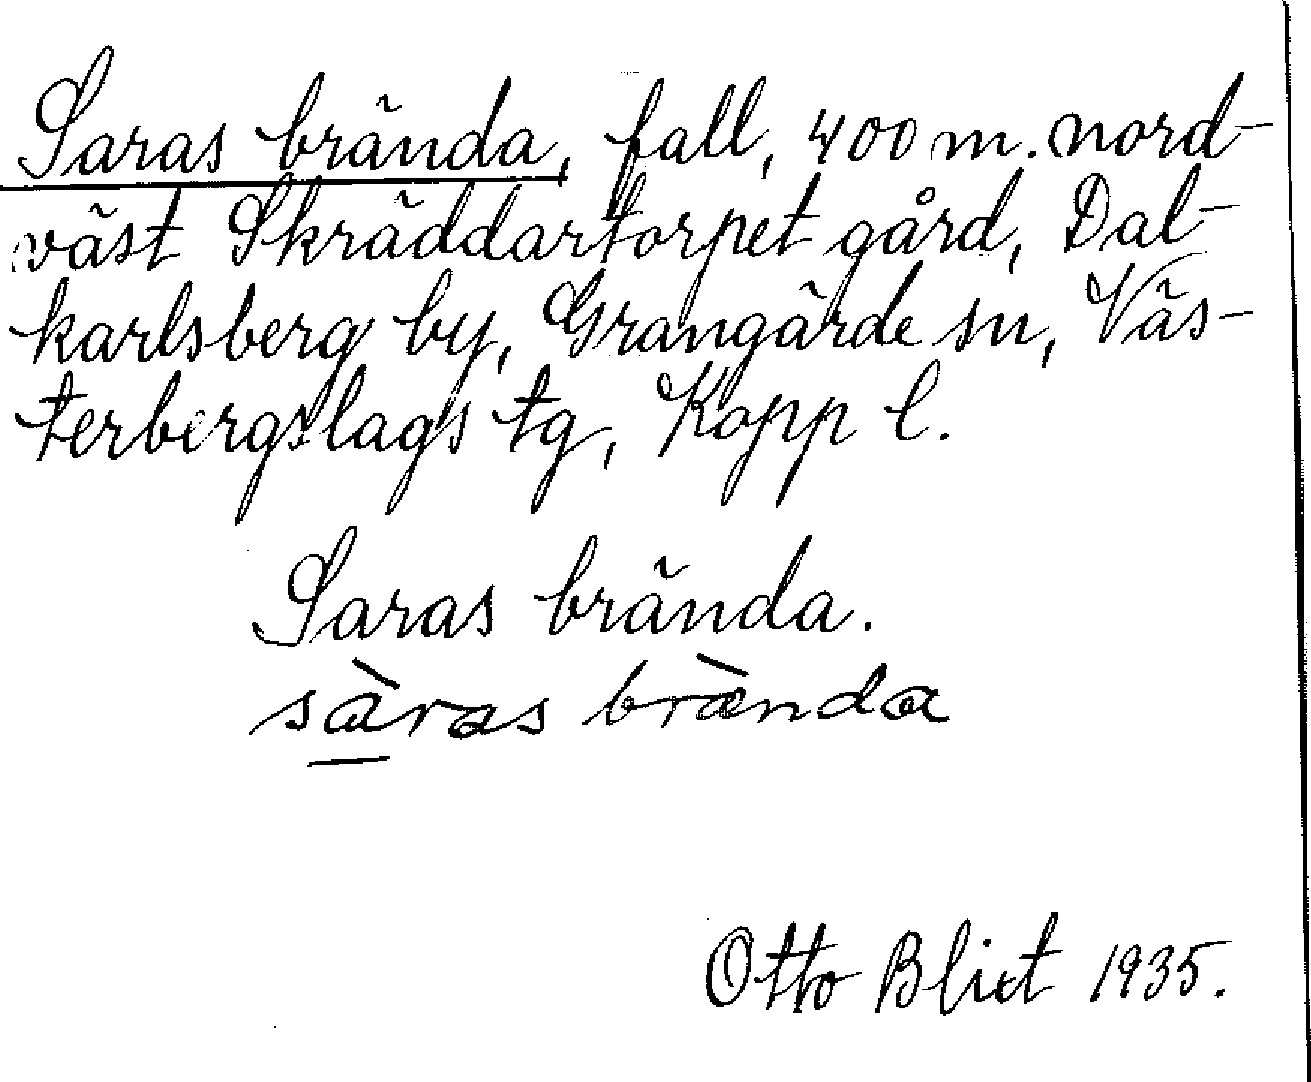 Saras brända, fall, 400 m. nord-
väst Skräddartorpet gård, Dal-
karlsberg by, Grangärde sn, Väs-
terbergslags tg, Kopp l.
Saras brända.
sàras bræ̀nda
Otto Blixt 1935.